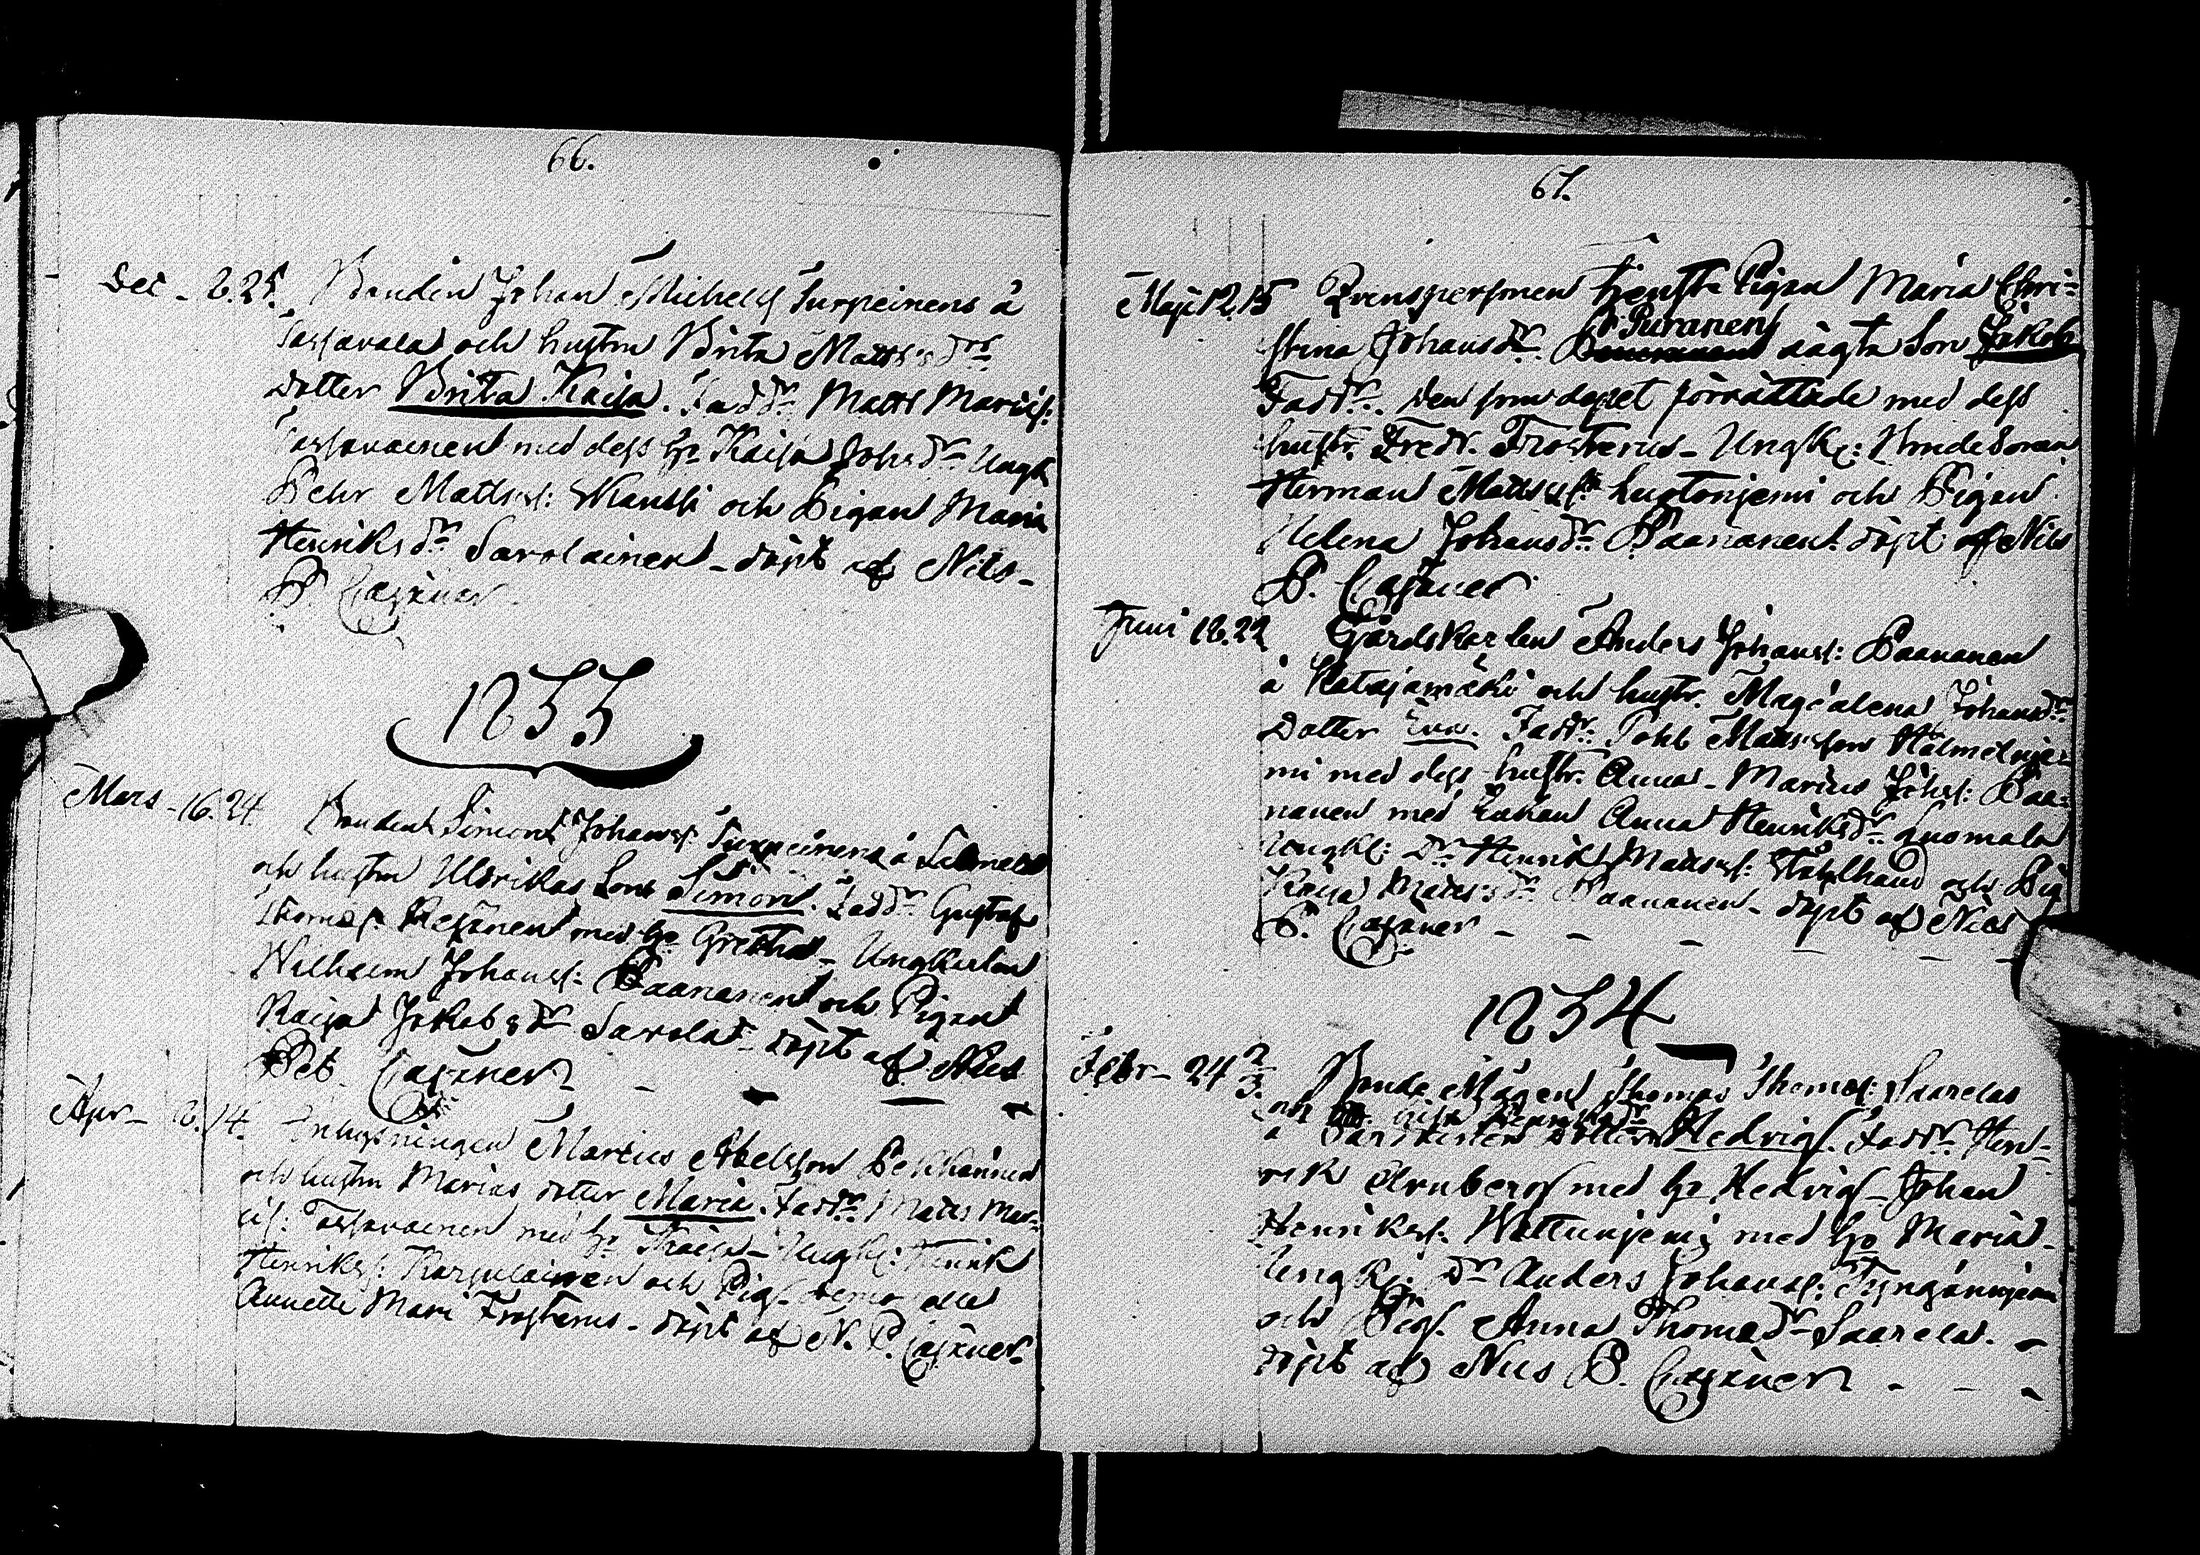 66.
Dec - 2. 25. Bonden Johan Michelss Turpeinens å
Tossavala och hustru Brita Matts dr
Dotter Brita Kaisa. Fadd. Matts Mariss:
Tossavainen med dess h. Kaisa Johsdr Ungk
Pehr Mattss: Manthi och Pigan Maria
Henriksdr Savolainen - döpt af Nils -
P. Cajxner
1833
Mars - 16. 24. Bonden Simon Johanss: Turpeinens å
och hustru Ulrikas Son Simon. Fadd. Gustaf
Thomass: med h. Gretha - Ungkarlen
Wilhelm Johanss: Paananen och Pigan
Kaisa Jakobsdr Savola - döpt af Nils
Pet. Cajxner
Apr - 2. 14. Inhysningen Marcus Abelsson Pekkarinen
och hustru Marias dotter Maria. Fadd. Matts Mar-
ciss: Tossavainen med h. Kaisa - Ungk: Henrik
Henrikss: Karjulainen och Pig.
Annette Mari Frosterus - döpt af N. P. Cajxner.
67.
Maji 12. 15 Qvenspersonen tjenste Pigan Maria Chri-
Puranens
stina Johansdr. oägta Son Jakob
Fadd. den som dopet förrättade med dess
hustr. Fredr. Frosterus - Ungk: Bondesonen
Herman Mattss Lustonjemi och Pigan
Helena Johansdr Paananen. döpt af Nils
P. Cajxner
Juni 18. 22 Gårdskarlen Anders Johanss: Paananen
å Katajamäki och hustr. Magdalena Johansdr
Dotter Eva. Fadd. Pehr Mattsson Halmetnie-
mi med dess hustr. Anna - Marcus Johss: Paa-
nanen med Enkan Anna Henriksdr Luomala
Ungk: Dr Henrik Mattss: Stählhand och Pig
Kaisa Mattsdr Paananen - döpt af Nils
P. Cajxner - - - - -
1834
Febr - 24 2/3. Bonde Mågen Thomas Thomass: Saarelas
och
å Dotter Hedvig. Fadd. Hen-
rik Arnberg med h. Hedvig - Johan
Henrikss: Wattunjemi med h. Maria -
Ungk: Dr Anders Johanss:
och Pig. Anna Thomadr Saarela. -
döpt af Nils P. Cajxner - - -